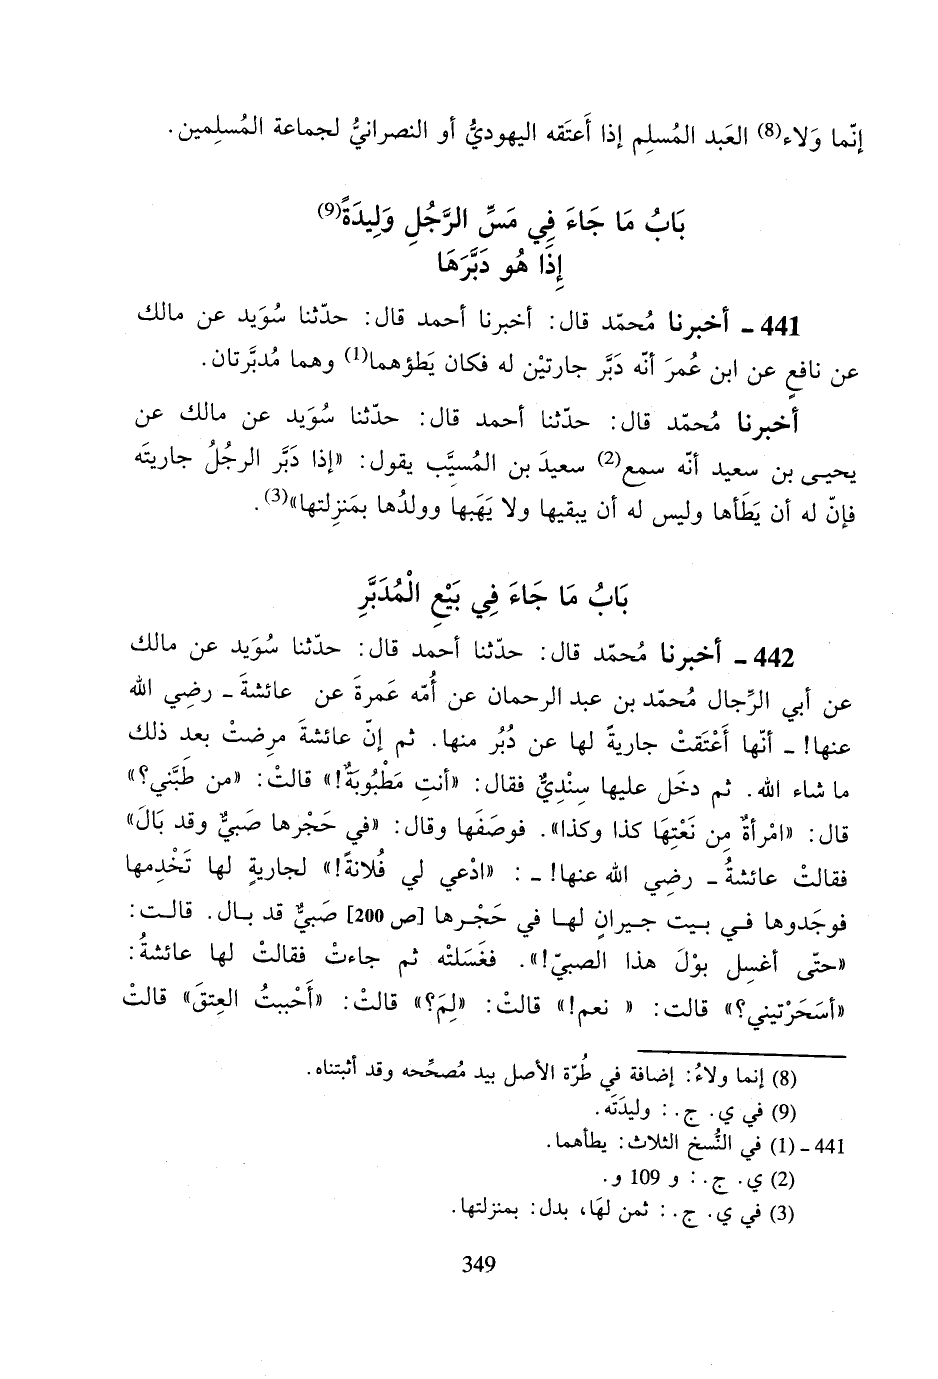 إنّما وَلاء(8) العَبد المُسلِم إذا أَعتَقه اليهوديُّ أو النصرانيُّ لجماعة المُسلِمين.
بَابُ مَا جَاءَ فِي مَسِّ الرَّجُلِ وَلِيدَةً(9)
إِذَا هُو دَبَّرَهَا
441 ـ أخبرنا مُحمّد قال: أخبرنا أحمد قال: حدّثنا سُوَيد عن مالك
عن نافعٍ عن ابن عُمرَ أنّه دَبَّر جارتيْن له فكان يَطؤهما(1) وهما مُدبَّرتان.
أخبرنا مُحمّد قال: حدّثنا أحمد قال: حدّثنا سُوَيد عن مالك عن
يحيى بن سعيد أنّه سمع(2) سعيدَ بن المُسيَّب يقول: «إذا دَبَّر الرجُلُ جاريتَه
فإنّ له أن يَطَأها وليس له أن يبقيها ولا يَهَبها وولدُها بمَنزِلتها»(3).
بَابُ مَا جَاءَ فِي بَيْعِ الْمُدَبَّرِ
442 ـ أخبرنا مُحمّد قال: حدّثنا أحمد قال: حدّثنا سُوَيد عن مالك
عن أبي الرِّجال مُحمّد بن عبد الرحمان عن أُمّه عَمرةَ عن عائشةَ ـ رضِي الله
عنها! ـ أنّها أَعْتَقتْ جاريةً لها عن دُبُر منها. ثم إنّ عائشةَ مرِضتْ بعد ذلك
ما شاء الله. ثم دخَل عليها سِنْدِيٌّ فقال: «أنتِ مَطْبُوبَةٌ!» قالتْ: «من طَبَّني؟»
قال: «امْرأةٌ مِن نَعْتِهَا كذا وكذا». فوصَفَها وقال: «في حَجْرها صَبيٌّ وقد بَالَ»
فقالتْ عائشةُ ـ رضِي الله عنها! ـ: «ادْعي لي فُلانةً!» لجاريةٍ لها تَخْدِمها
فوجَدوها في بيت جيرانٍ لها في حَجْرها [ص 200] صَبيٌّ قد بال. قالت:
«حتّى أغسِل بوْلَ هذا الصبيّ!». فغَسَلتْه ثم جاءتْ فقالتْ لها عائشةُ:
«أسَحَرْتيني؟» قالت: « نعم!» قالتْ: «لِمَ؟» قالتْ: «أَحْببتُ العِتقَ» قالتْ
(8) إنما ولاءُ: إضافة في طُرّة الأصل بيد مُصحِّحه وقد أثبتناه.
(9) في ي. ج.: وليدَتَه.
441 ـ (1) في النُّسخ الثلاث: يطأهما.
(2) ي. ج.: و 109 و.
(3) في ي. ج.: ثمن لهَا، بدل: بمنزلتها.
349